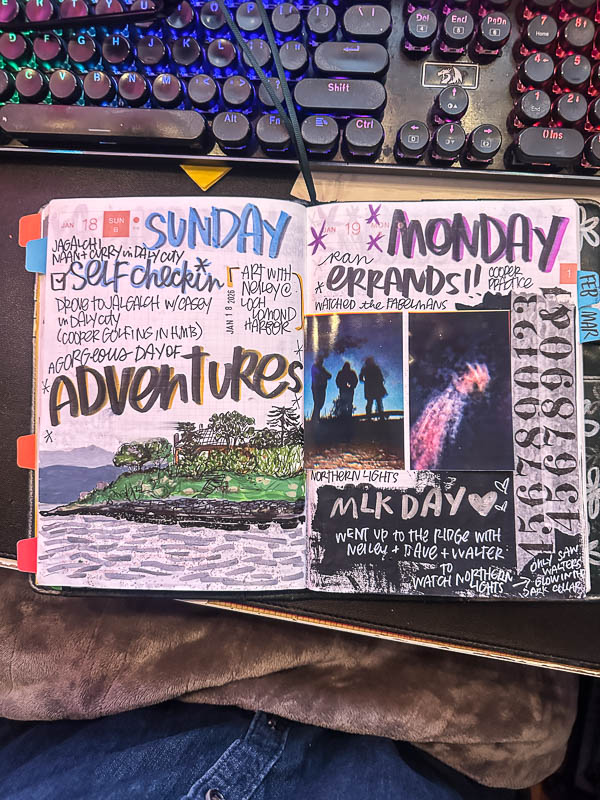 Del
End
PgDn
7
Home
8↑
4←
5
Shift
1
End
2↓
Alt
Fn
Ctrl
0Ins
JAN 18 SUN SUNDAY
JAGALCHI
NAAN + CURRY in DALY CITY
SELF checkin
DROVE TO JALGALCH W/CASEY
in DALY CITY
(COOPER GOLFING IN HMB)
JAN 18 2026
ART WITH
NEILEY @
LOCH
LOMOND
HARBOR
A GORGEOUS DAY OF
ADVENTURES
JAN 19 MON MONDAY
ran
ERRANDS!!
COOPER
PRACTICE
WATCHED the FABELMANS
1
FEB
MAR
4567890123
4567890&
NORTHERN LIGHTS
MLK DAY
WENT UP TO THE RIDGE WITH
NEILEY + DAVE + WALTER
TO
WATCH NORTHERN
LIGHTS
ONLY SAW
WALTERS
GLOW IN THE
DARK COLLAR